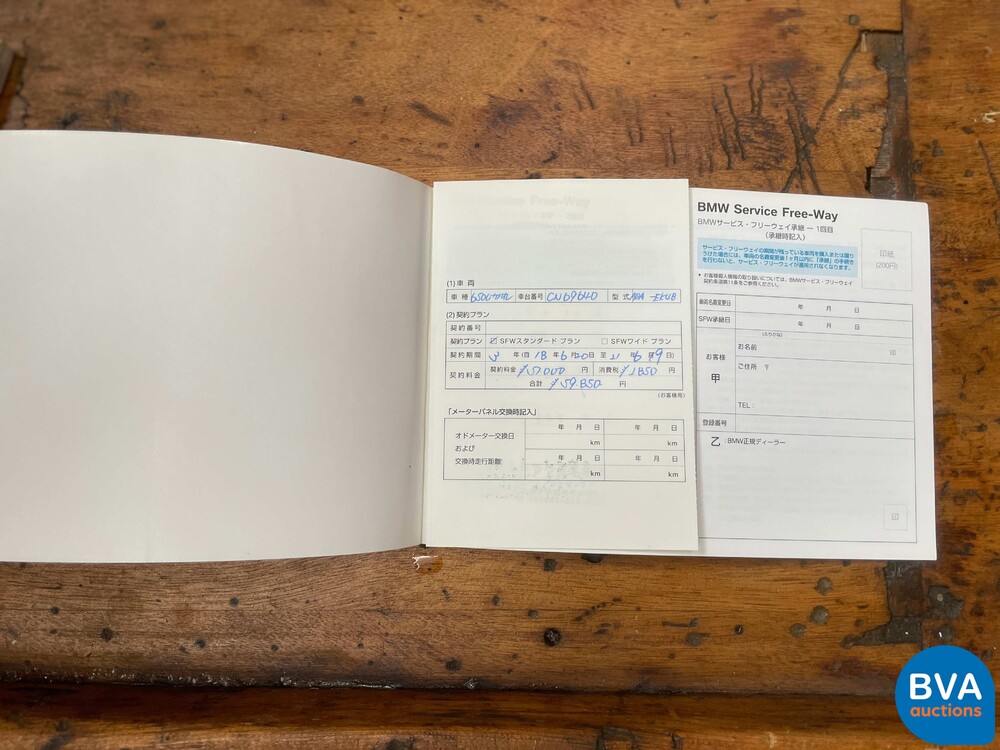 (1)車 両
車 種 650iカブリオレ 車台番号 CN69640 型 式 ABA -EK48
(2)契約プラン
契 約 番 号
契約プラン ☑ SFWスタンダード プラン □ SFWワイド プラン
契 約 期 間 3 年(自 18 年 6 月 20 日 至 21 年 6 月 19 日)
契 約 料 金 契約料金 ¥57,000 円 消費税 ¥2,850 円
合計 ¥59,850 円
(お客様用)
「メーターパネル交換時記入」
オドメーター交換日
および
交換時走行距離
年 月 日 年 月 日
km km
年 月 日 年 月 日
km km
BMW Service Free-Way
BMWサービス・フリーウェイ承継 ー 1回目
(承継時記入)
印紙
(200円)
サービス・フリーウェイの期間が残っている車両を購入または譲り
うけた場合には、車両の名義変更後1ヶ月以内に「承継」の手続き
を行わないと、サービス・フリーウェイが適用されなくなります。
* お客様個人情報の取り扱いについては、BMWサービス・フリーウェイ
契約条項第11条をご参照ください。
車両名義変更日 年 月 日
SFW承継日 年 月 日
お客様
甲
(ふりがな)
お名前 印
ご住所 〒
TEL:
登録番号
乙 :BMW正規ディーラー
印
BVA
auctions